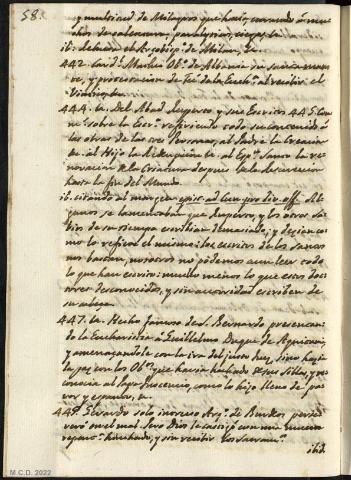 58.
y multitud de Milagros que hacía, curando á mu-
chos de calentura, paralyticos, ciegos, &c.
ib. del Arzobispo de Milan, &c.
442. Card. Matheo Ob. de Albania su muerte
te, y protestacion de Fé de la Euch. al recibir el
Viatico &c.
444. &c. Del Abad Ruperto, y sus Escritos 445. Com.
sobre la Escr. refiriendo todo su contenido á
las obras de las tres Personas, al Padre la Creacion
&c. al Hijo la Redempcion &c. al Esp. Santo la re-
novacion de la Criatura despues
hasta fin del Mundo.
ib. citando al margen epist. ad Cun. pro div. off. Al-
gunos se lamentaban que Ruperto, y los otros Sa-
bios de su tiempo escribian demasiado, y decian co-
mo lo refiere el mismo: los escritos de los Santos
nos bastan, nosotros no podemos aun leer todo
lo que han escrito: mucho menos lo que estos Doc-
tores desconocidos, y sin autoridad escriben de
su cabeza.
447. &c. Hecho famoso de S. Bernardo presentan-
do la Eucharistia á Guillelmo Duque de Aquitania,
y amenazandole con la ira del justo Juez, sino hacía
la paz con los Ob. que havia hechado de sus Sillas, y re-
conocia al Papa Inocencio, como lo hizo lleno de pa-
vor y espanto, &c.
449. Gerardo solo intruso Arz. de Burdeos perse-
veró en el mal. Pero Dios le castigó con una muerte
repent. hinchado, y sin recibir los Sacram.
ibid.
M.C.D. 2022